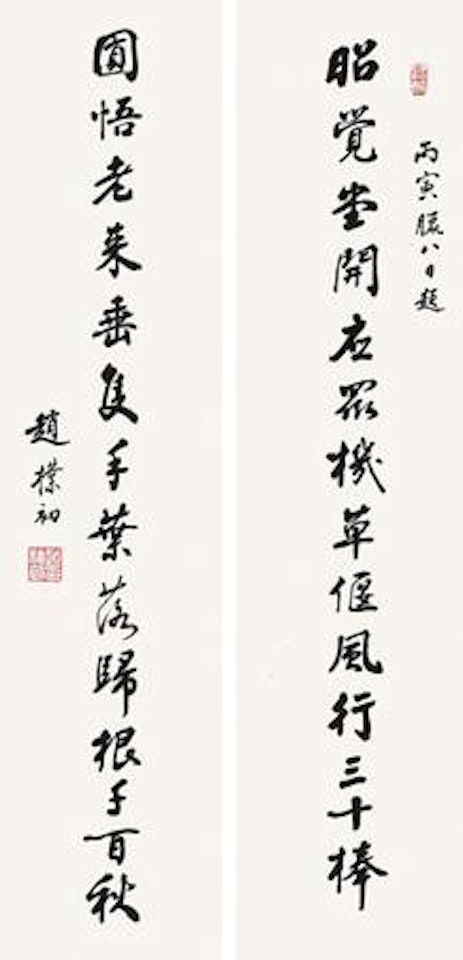 丙寅臘八日題
昭覺堂開应眾機草偃風行三十棒
圓悟老来垂隻手葉落歸根千百秋
趙樸初